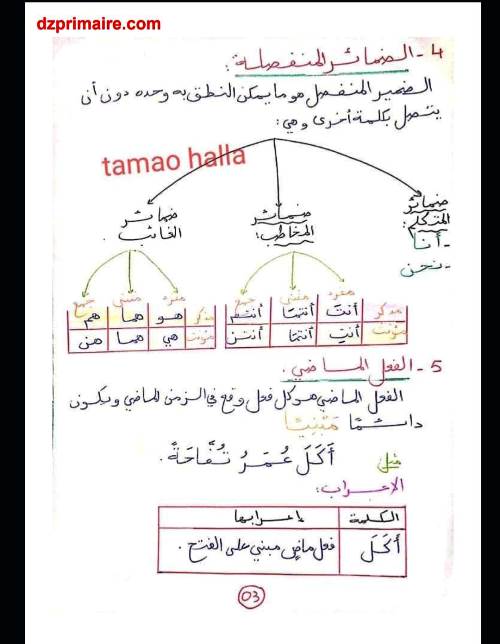 dzprimaire.com
4 - الضمائر المنفصلة :
الضمير المنفصل هو ما يمكن النطق به وحده دون أن
يتصل بكلمة أخرى وهي :
tamao halla
ضمائر المتكلم :
- أنا
- نحن
ضمائر المخاطب :
ضمائر الغائب .
مفرد مثنى جمع
مذكر أنتَ أنتما أنتم
مؤنث أنتِ أنتما أنتن
مفرد مثنى جمع
مذكر هو هما هم
مؤنث هي هما هن
5 - الفعل الماضي .
الفعل الماضي هو كل فعل وقع في الزمن الماضي ويكون
دائمًا مَبْنِيًّا
مثل أَكَلَ عُمَرُ تُفَّاحَةً.
الإعراب :
الكلمة إعرابها
أَكَلَ فعل ماضٍ مبني على الفتح .
03